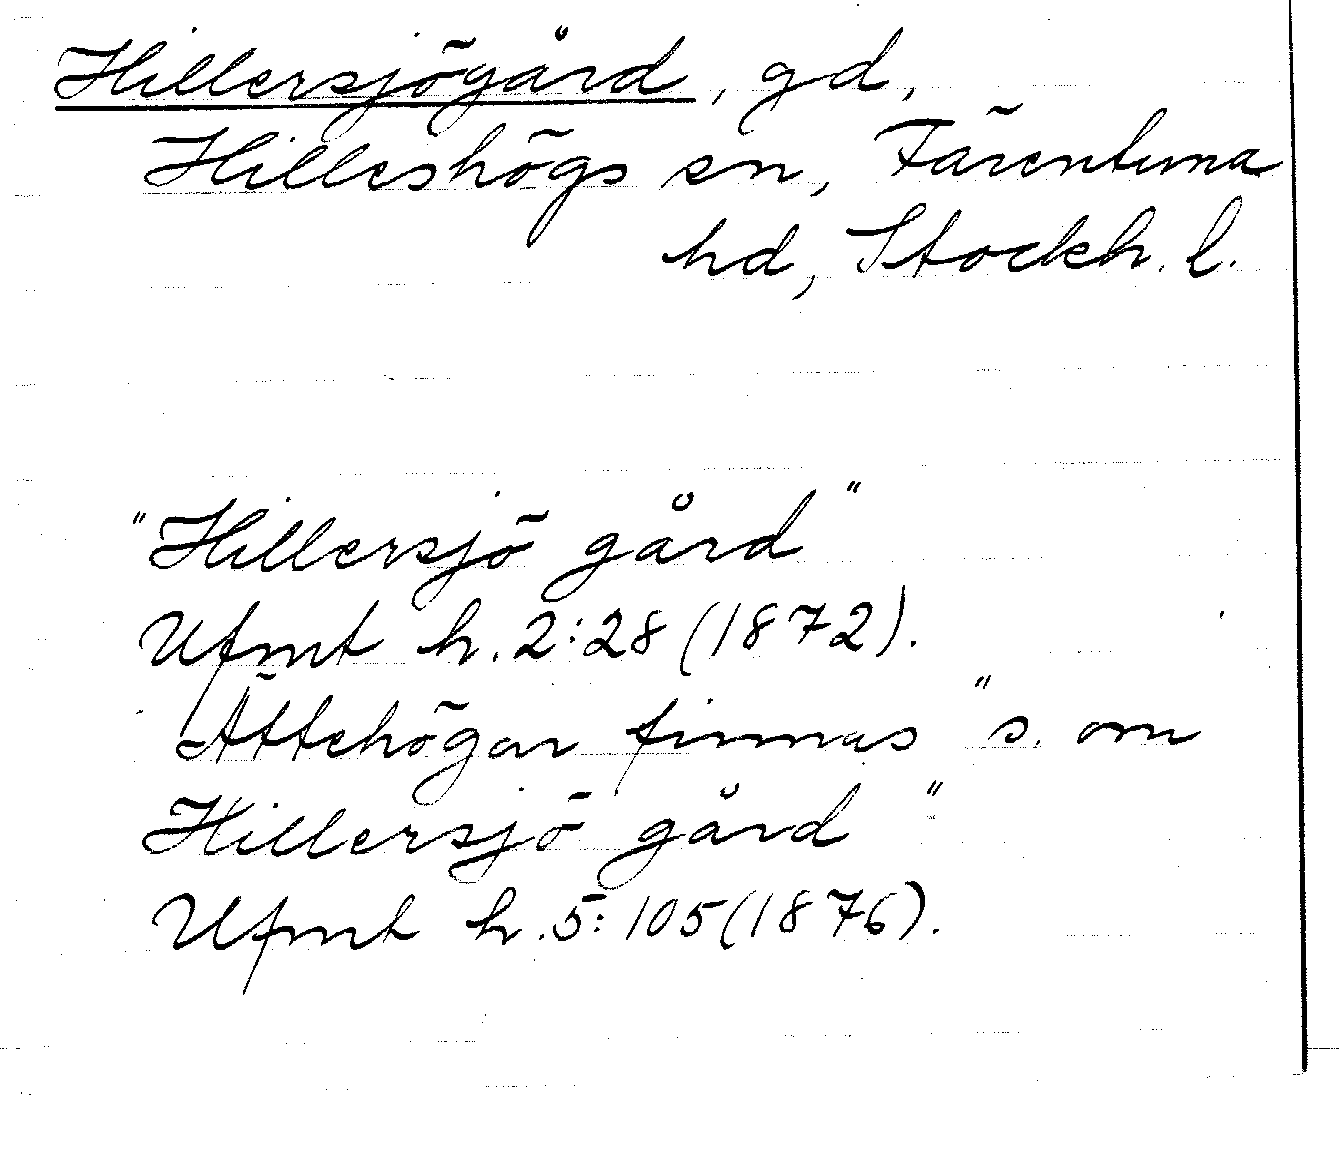 Hillersjögård, gd,
Hilleshögs sn, Färentuna
hd, Stockh. l.
"Hillersjö gård"
Ufmt h. 2:28 (1872).
Ättehögar finnas "s. om
Hillersjö gård"
Ufmt h. 5: 105 (1876).